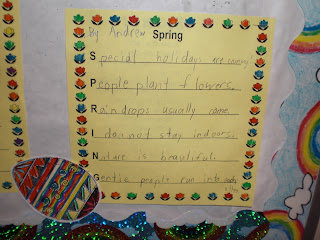 By Andrew
Spring
Special holidays are coming.
People plant flowers.
Raindrops usually come
I do not stay indoors.
Nature is beautiful.
Gentle people run into